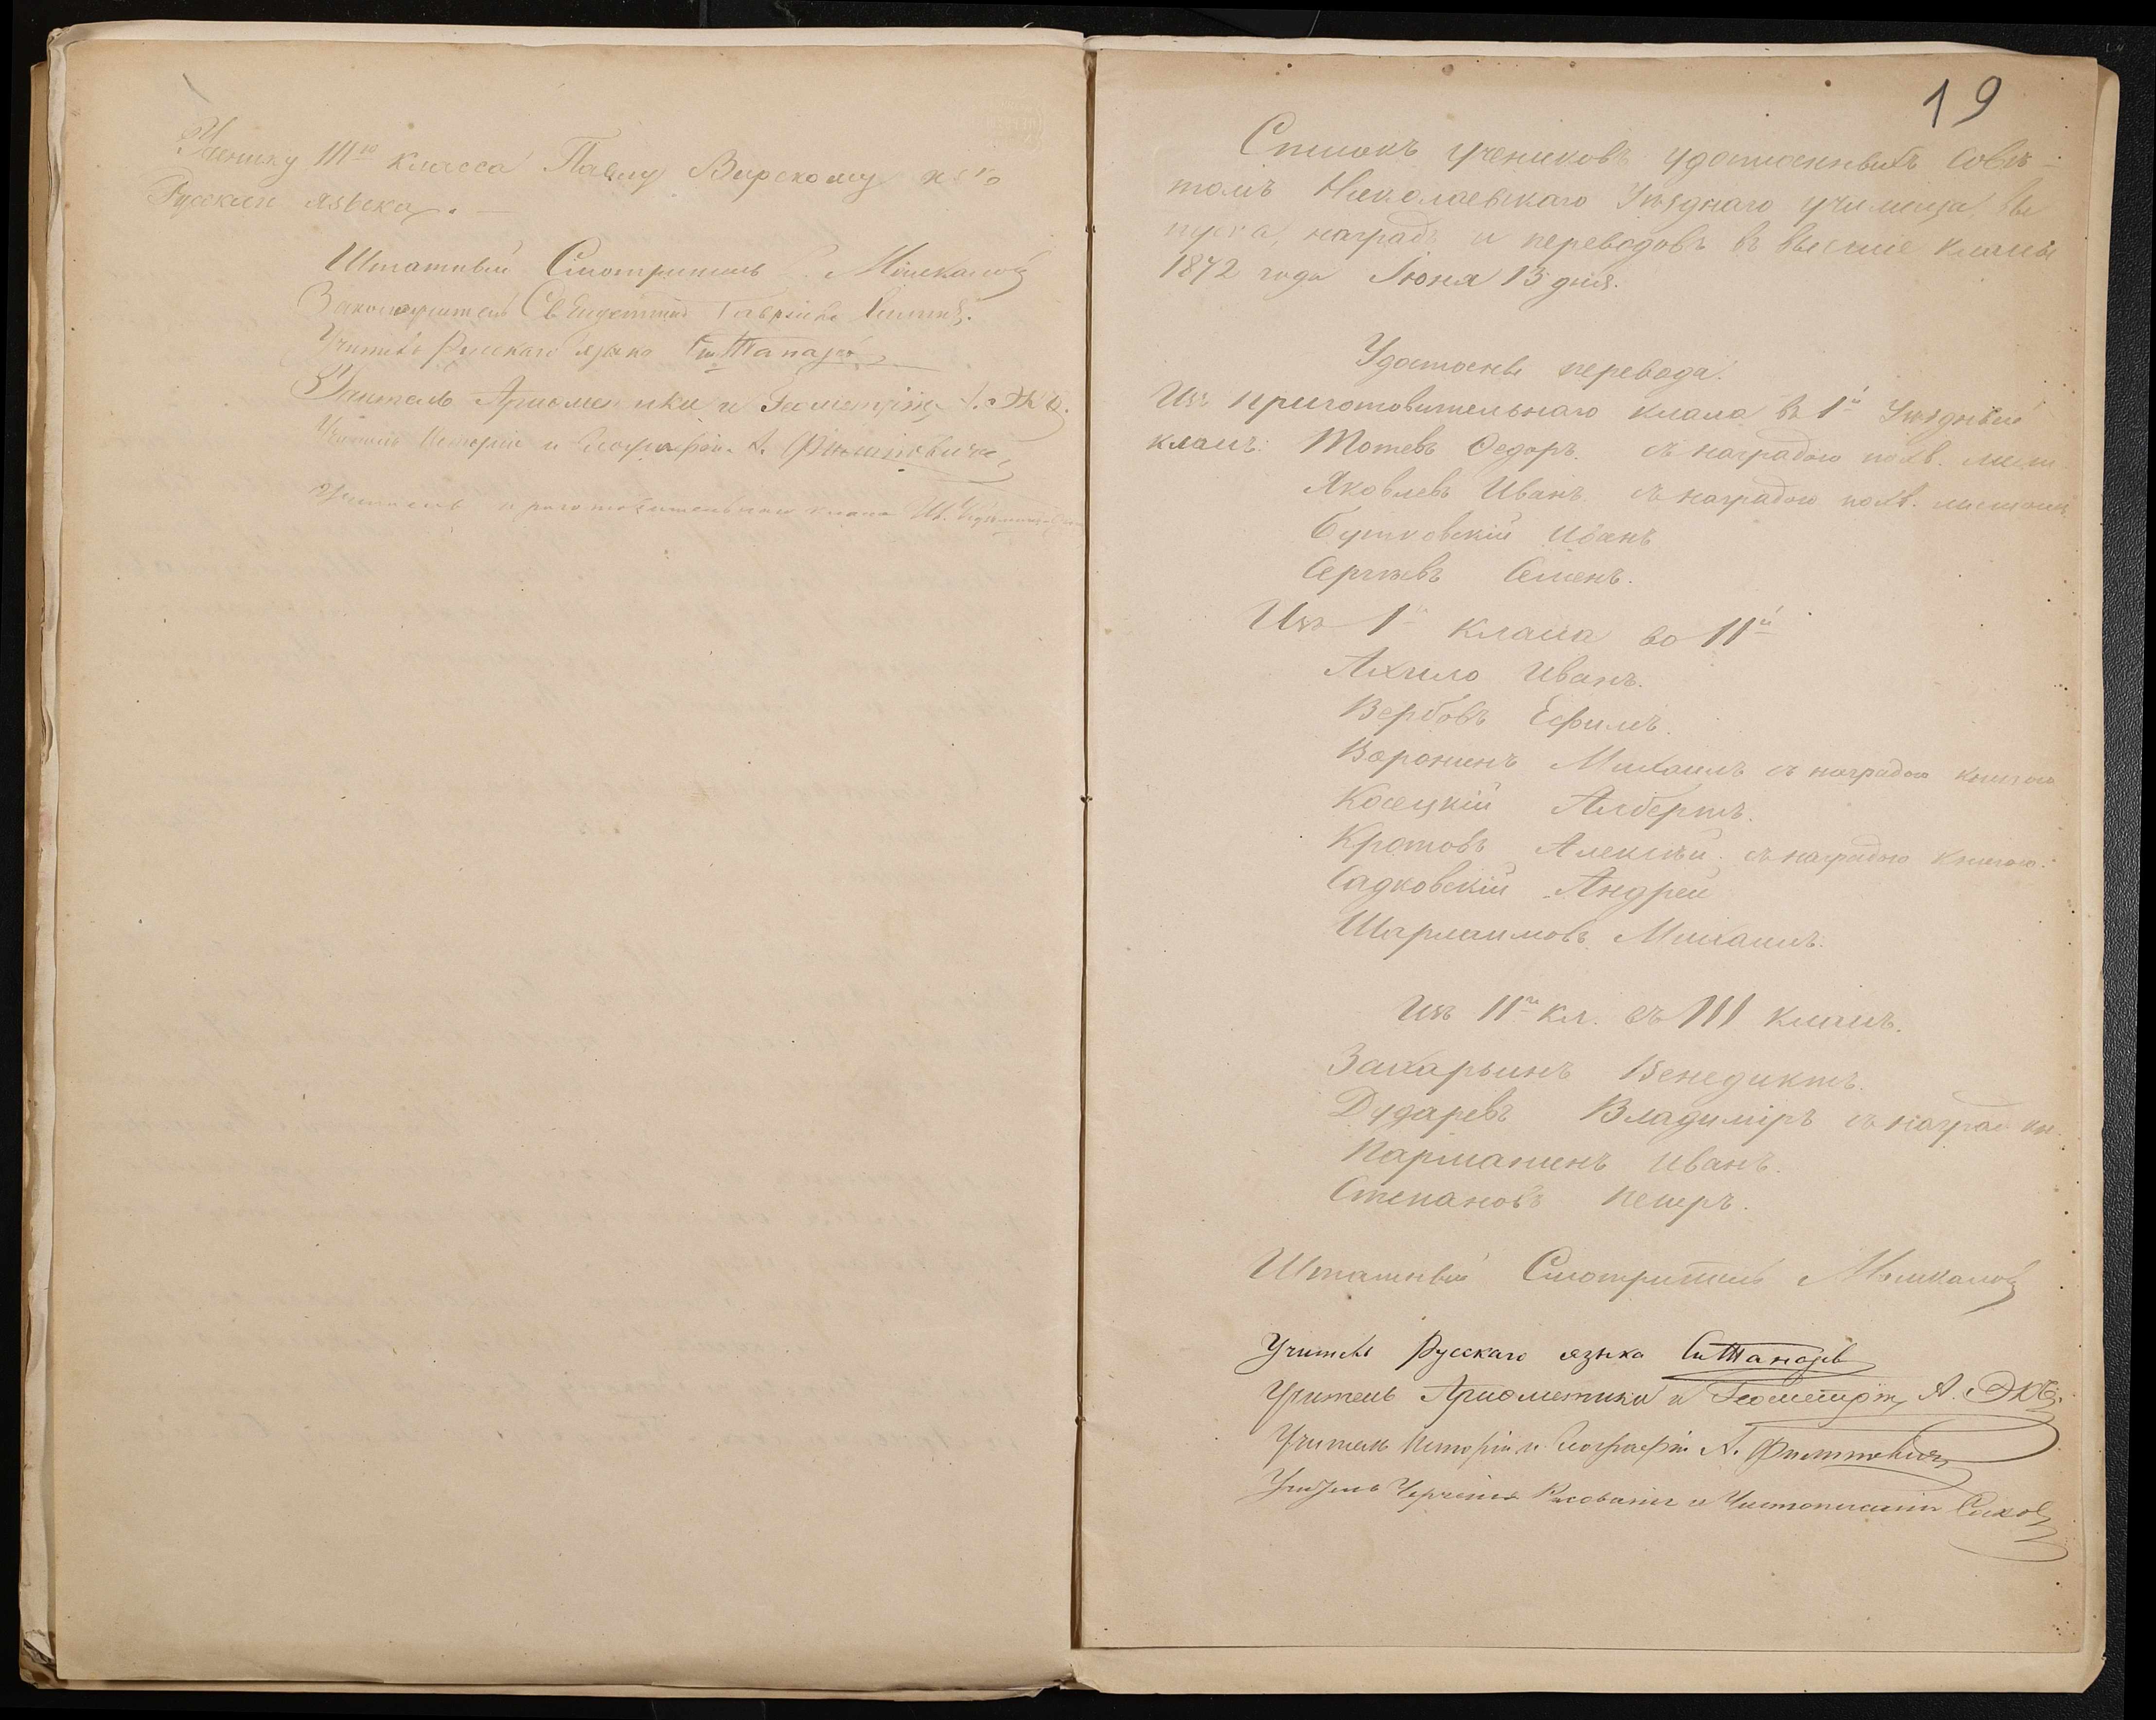 Ученику IIIго класса Павлу Вирскому изъ
Русскаго языка. —
Штатный Смотритель Мышкаловъ
Законоучитель Св.
Учитель Русскаго языка
Учитель Ариѳметики и Геометріи
Учитель Исторіи и Географіи А.
Учитель приготовительнаго класса Ив.
19
Списокъ учениковъ удостоенныхъ Совѣ-
томъ Николаевскаго Уѣзднаго училища, вы
пуска, наградъ и переводовъ въ высшіе классы
1872 года Іюня 13 дня.
Удостоены перевода.
Изъ приготовительнаго класса въ 1й Уѣздный
классъ: Тотевъ Ѳедоръ. съ наградою похв. лист
Яковлевъ Иванъ. съ наградою похв. листомъ
Бутковскій Иванъ
Сергѣевъ Семенъ.
Изъ I класса во IIй
Ахило Иванъ.
Вербовъ Ефимъ.
Воронинъ Михаилъ съ наградою книгою
Косецкій Албертъ.
Кротовъ Алексѣй. съ наградою книгою.
Садковскій Андрей
Шарлаимовъ Михаилъ.
Изъ IIго кл. въ III классъ.
Захарьинъ Венедиктъ.
Дударевъ Владиміръ съ наград кн.
Парманинъ Иванъ.
Степановъ Петръ.
Штатный Смотритель Мышкаловъ
Учитель Русскаго языка
Учитель Ариѳметики и Геометріи А.
Учитель Исторіи и Географіи А.
Учитель Черченія Рисованія и Чистописанія